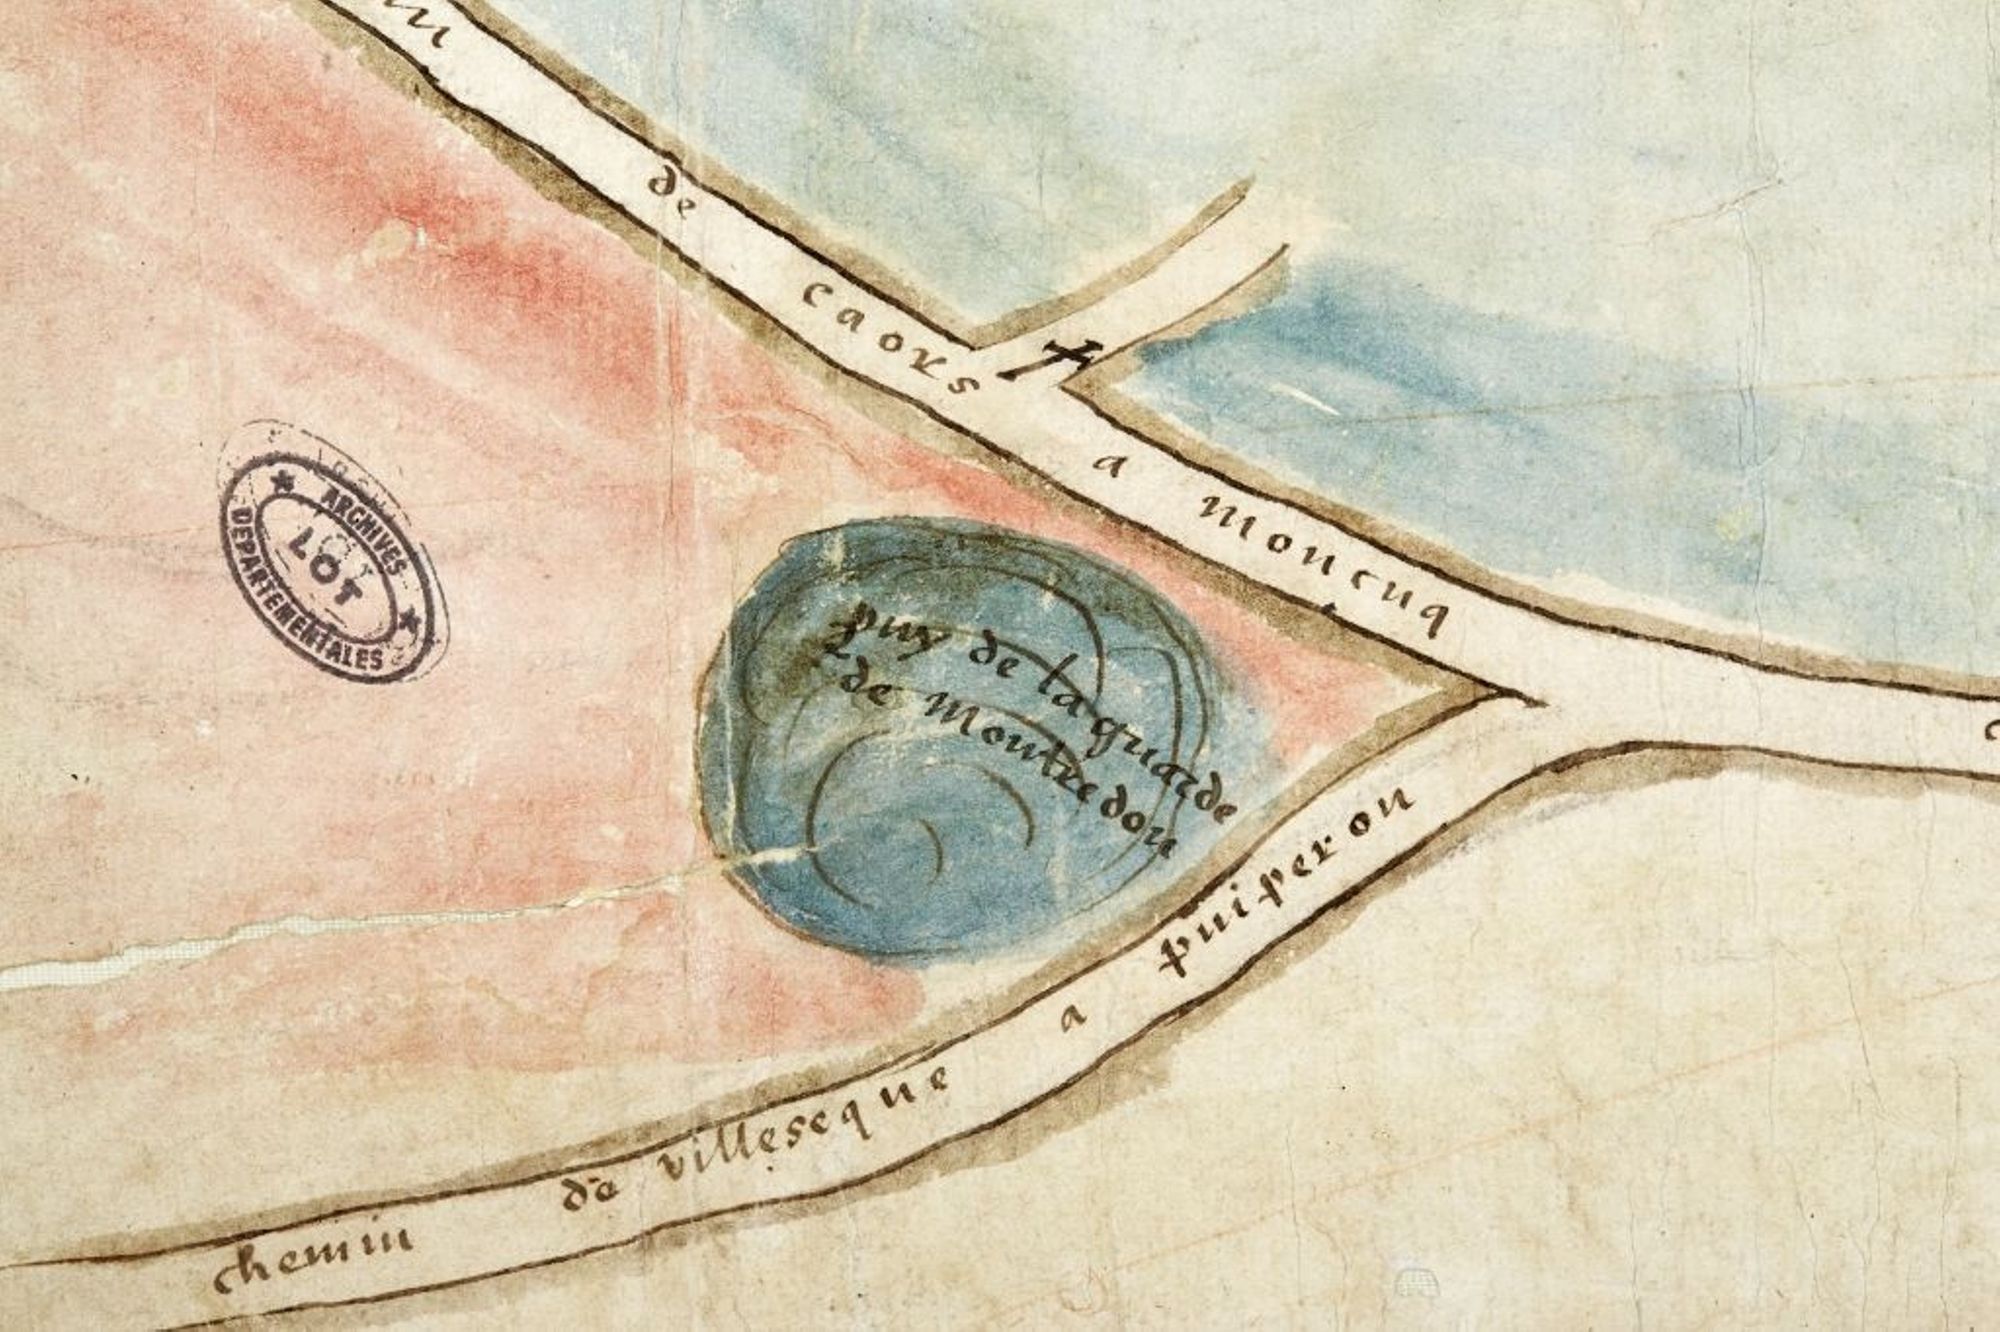 de caors a moncuq
puy de la guarde
de Montredon
chemin de villeseque a puiperon
ARCHIVES
LOT
DEPARTEMENTALES